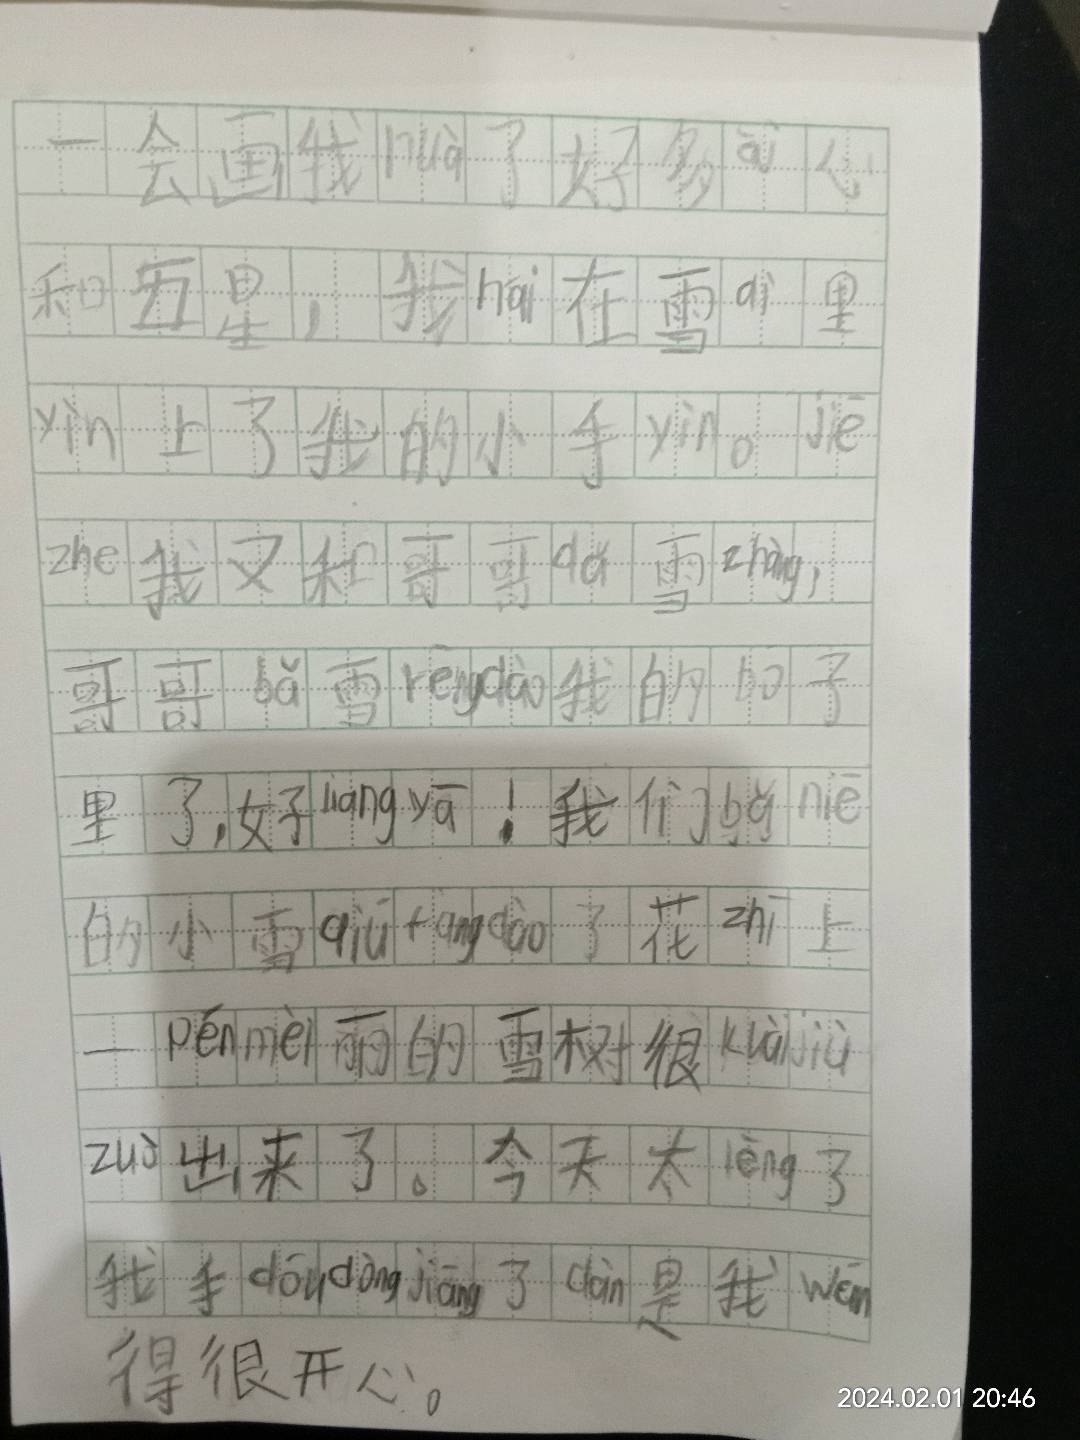 一会画我huà了好多ài心
和五星，我hái在雪dì里
yìn上了我的小手yìn。jiē
zhe我又和哥哥dǎ雪zhàng，
哥哥bǎ雪rēngdào我的bó子
里了，好liángyā！我们bǎ niē
的小雪qiútàngdào了花zhī上
一pén měi丽的雪树很kuàijiù
zuò出来了。今天太lěng了
我手dōudòngjiāng了dàn是我wén
得很开心。
2024.02.01 20:46